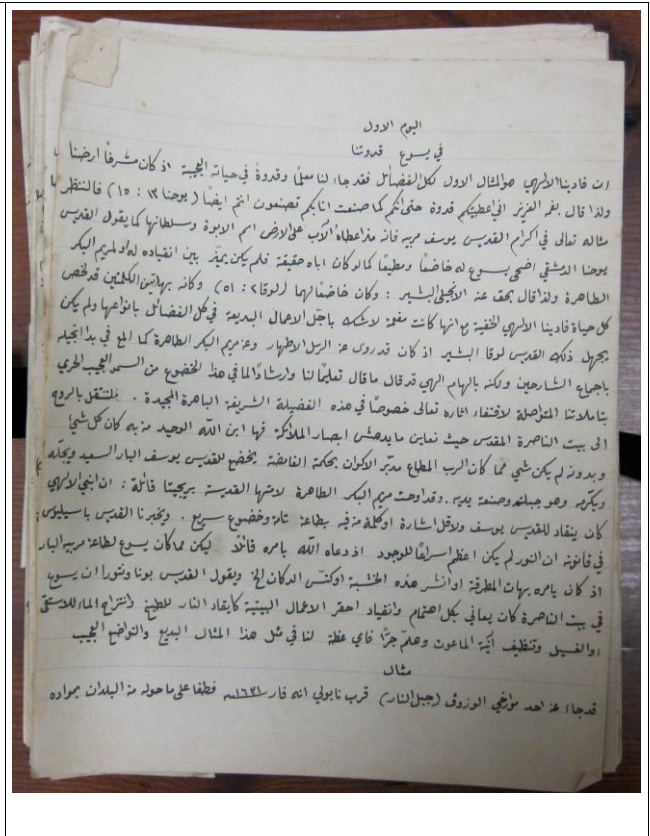 اليوم الاول
في يسوع قدوتنا
ان فادينا الالهي هو المثال الاول لكل الفضائل فقد جاء لنا معلمًا وقدوة في حياته العجيبة اذ كان مشرفًا ارضنا
ولذا قال بفمه العزيز اني اعطيتكم قدوة حتى انكم كما صنعت انا بكم تصنعون انتم ايضًا (يوحنا ١٣ : ١٥) فالننظر
مثاله تعالى في اكرام القديس يوسف مربيه فانه مذ اعطاه الآب على الارض اسم الابوة وسلطانها كما يقول القديس
يوحنا الدمشقي اضحى يسوع له خاضعًا ومطيعًا كما لو كان اباه حقيقة فلم يكن يميّز بين انقياده له او لمريم البكر
الطاهرة ولذا قال بحق عنه الانجيلي البشير : وكان خاضعًا لهما (لوقا ٢ : ٥١) وكانه بهاتين الكلمتين قد لخص
كل حياة فادينا الالهي الخفية مع انها كانت مفعمة لا شك باجَل الاعمال البديعة في كل الفضائل بانواعها ولم يكن
يجهل ذلك القديس لوقا البشير اذ كان قد روى عن الرسل الاطهار وعن مريم البكر الطاهرة كما المع في بدا انجيله
باجماع الشارحين ولكنه بالهام الهي قد قال ما قال تعليمًا لنا وارشادًا لما في هذا الخضوع من السمو العجيب الحري
بتاملاتنا المتواصلة لاقتفاء اثاره تعالى خصوصًا في هذه الفضيلة الشريفة الباهرة المجيدة . فلننتقل بالروح
الى بيت الناصرة المقدس حيث نعاين ما يدهش ابصار الملائكة فها ابن الله الوحيد من به كان كل شيء
وبدونه لم يكن شي مما كان الرب المطاع مدبّر الاكوان بحكمته الغامضة يخضع للقديس يوسف البار السعيد ويجلّه
ويكرّمه وهو جبلته وصنعة يديه . وقد اوحت مريم البكر الطاهرة لامتها القديسة بريجيتا قائلة : ان ابني الالهي
كان ينقاد للقديس يوسف ولاقل اشارة او كلمة من فيه بطاعة تامة وخضوع سريع . ويخبرنا القديس باسيليوس
في قانونه ان النور لم يكن اعظم اسراعًا للوجود اذ دعاه الله يامره قائلًا ليكن مما كان يسوع لطاعة مربيه البار
اذ كان يامره بهات المطرقة او انشر هذه الخشبة او كنّس الدكان الخ ويقول القديس بوناونتورا ان يسوع
في بيت الناصرة كان يعاني بكل اهتمام وانقياد احقر الاعمال البيتية كايقاد النار للطبخ وانتزاح الماء للاستقى
او الغسيل وتنظيف آنية الماعون وهلمّ جرًّا فاي عظة لنا في مثل هذا المثال البديع والتواضع العجيب
مثال
قد جاء عن احد مؤرخي الوزوف (جبل النار) قرب نابولي انه فار سنة ١٦٣١ فطفا على ما حوله من البلدات بمواده